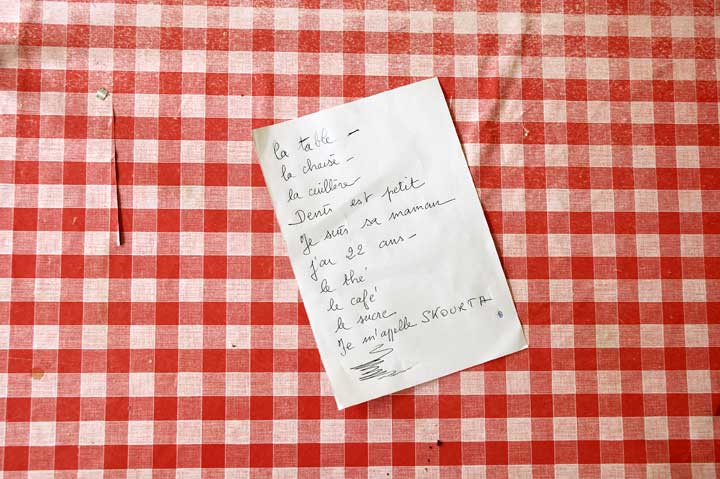 la table -
la chaise -
la cuillère
Denis est petit
Je suis sa maman
j'ai 22 ans -
le thé
le café
le sucre
Je m'appelle SKOURTA